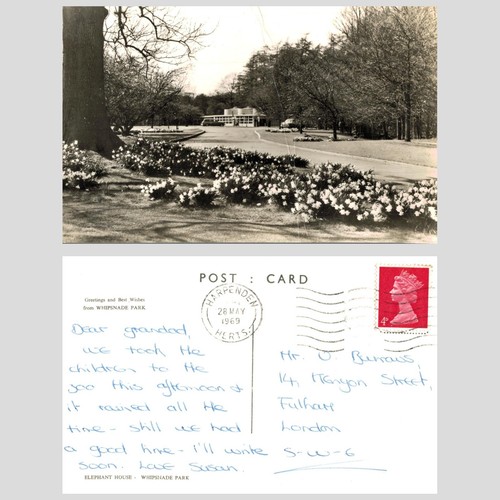 POST : CARD
Greetings and Best Wishes
from WHIPSNADE PARK
HARPENDEN
28 MAY
1969
HERTS.
4ᵈ
Dear grandad,
we took the
children to the
zoo this afternoon &
it rained all the
time - still we had
a good time - I'll write
soon. Love Susan.
Mr. V Burrows,
14 Kenyon Street,
Fulham
London
S-W-6
ELEPHANT HOUSE : WHIPSNADE PARK